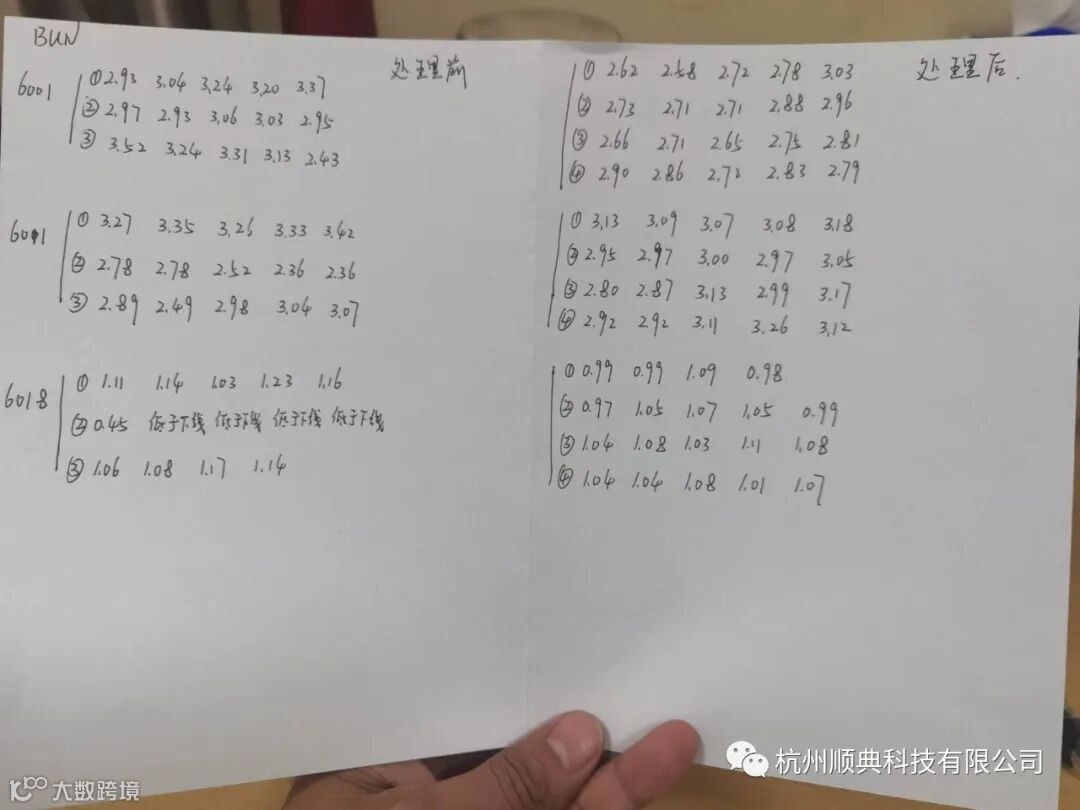 BUN
处理前
6001
① 2.93 3.04 3.24 3.20 3.37
② 2.97 2.93 3.06 3.03 2.95
③ 3.52 3.24 3.31 3.13 2.43
6001
① 3.27 3.35 3.26 3.33 3.42
② 2.78 2.78 2.52 2.36 2.36
③ 2.89 2.49 2.98 3.04 3.07
6018
① 1.11 1.14 1.03 1.23 1.16
② 0.45 低于下线 低于下线 低于下线 低于下线
③ 1.06 1.08 1.17 1.14
处理后.
① 2.62 2.58 2.72 2.78 3.03
② 2.73 2.71 2.71 2.88 2.96
③ 2.66 2.71 2.65 2.75 2.81
④ 2.90 2.86 2.83 2.79
① 3.13 3.09 3.07 3.08 3.18
② 2.95 2.97 3.00 2.97 3.05
③ 2.80 2.87 3.13 2.99 3.17
④ 2.92 2.92 3.11 3.26 3.12
① 0.99 0.99 1.09 0.98
② 0.97 1.05 1.07 1.05 0.99
③ 1.04 1.08 1.03 1.11 1.08
④ 1.04 1.04 1.08 1.01 1.07
杭州顺典科技有限公司
大数跨境